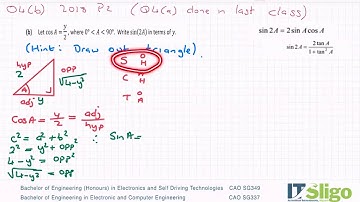 Q4(b) 2018 P2 (Q4(a) done in last class)
(b) Let cos A = y/2, where 0° < A < 90°. Write sin(2A) in terms of y.
sin 2A = 2 sin A cos A
(Hint: Draw out triangle).
sin 2A = 2 tan A / 1 + tan² A
hyp
2
opp
√4-y²
A
adj y
S O H
C A H
T O A
Cos A = y/2 = adj/hyp
c² = a² + b²
∴ Sin A =
2² = y² + opp²
4 - y² = opp²
√4-y² = opp
IT Sligo
Bachelor of Engineering (Honours) in Electronics and Self Driving Technologies CAO SG349
Bachelor of Engineering in Electronic and Computer Engineering CAO SG337